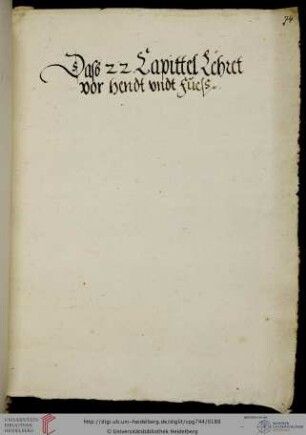 74
Daß 22 Capittel Lehret
vor hendt vndt fuess.
UNIVERSITÄTS
BIBLIOTHEK
HEIDELBERG
http://digi.ub.uni-heidelberg.de/diglit/cpg744/0188
© Universitätsbibliothek Heidelberg